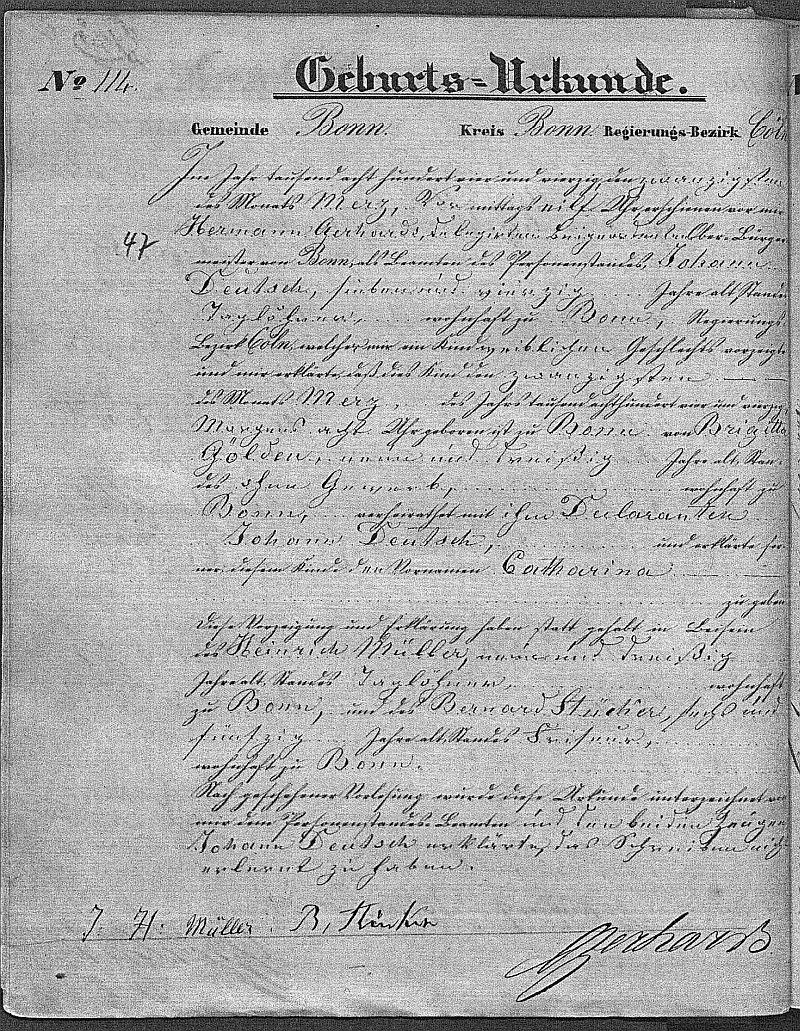 No 114.
Geburts-Urkunde.
Gemeinde Bonn. Kreis Bonn. Regierungs-Bezirk Cöln
Im Jahr tausend acht hundert vier und vierzig, den zwanzigsten
des Monats Merz, Vormittags eilf Uhr, erschienen vor mir
47
Hermann Gerhards, delegirten Beigeordneten Ober-Bürger-
meister von Bonn, als Beamten des Personenstandes, Johann
Deutsch, sieben und vierzig Jahre alt, Standes
Taglöhner, wohnhaft zu Bonn, Regierungs-
Bezirk Cöln, welcher mir ein Kind weiblichen Geschlechts vorzeigte
und mir erklärte, daß dies Kind den zwanzigsten
des Monats Merz, des Jahrs tausend achthundert vier und vierzig
Morgens acht Uhr geboren ist zu Bonn von Brigitta
Gölden, neun und dreißig Jahre alt, Stan-
des ohne Gewerb, wohnhaft zu
Bonn, verheirathet mit ihm Declaranten
Johann Deutsch, und erklärte fer-
ner, diesem Kinde den Vornamen Catharina
zu geben
Diese Vorzeigung und Erklärung haben statt gehabt in Beisein
des Heinrich Müller, neun und dreißig
Jahre alt, Standes Taglöhner, wohnhaft
zu Bonn, und des Bernard Stücker, sechs und
fünfzig Jahre alt, Standes Friseur,
wohnhaft zu Bonn.
Nach geschehener Vorlesung wurde diese Urkunde unterzeichnet von
mir dem Personenstandes-Beamten und den beiden Zeugen
Johann Deutsch erklärte, das Schreiben nicht
erlernt zu haben.
J. H. Müller. B, Stücker
Gerhards